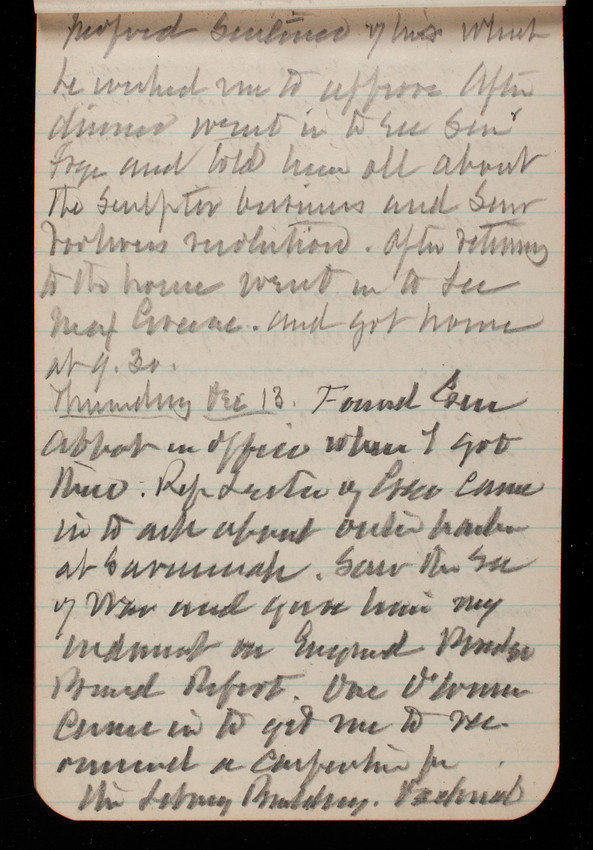 proposed sentence of his what
he wished me to approve After
dinner went in to see Sen'r
and told him all about
the Sculptor business and Sen'r
Voorhees resolution. After returning
to the house went in to see
Greene. and got home
at 9.30.
Thursday Dec 13. Found Gen
Abbot in office when I got
there. Rep Lester of Geo came
in to ask about outer harbor
at Savannah. Saw the Sec
of War and gave him my
indorsmt on Engrs Bridge
Board Report. One
came in to get me to rec-
ommend a carpenter for
the Library Building.